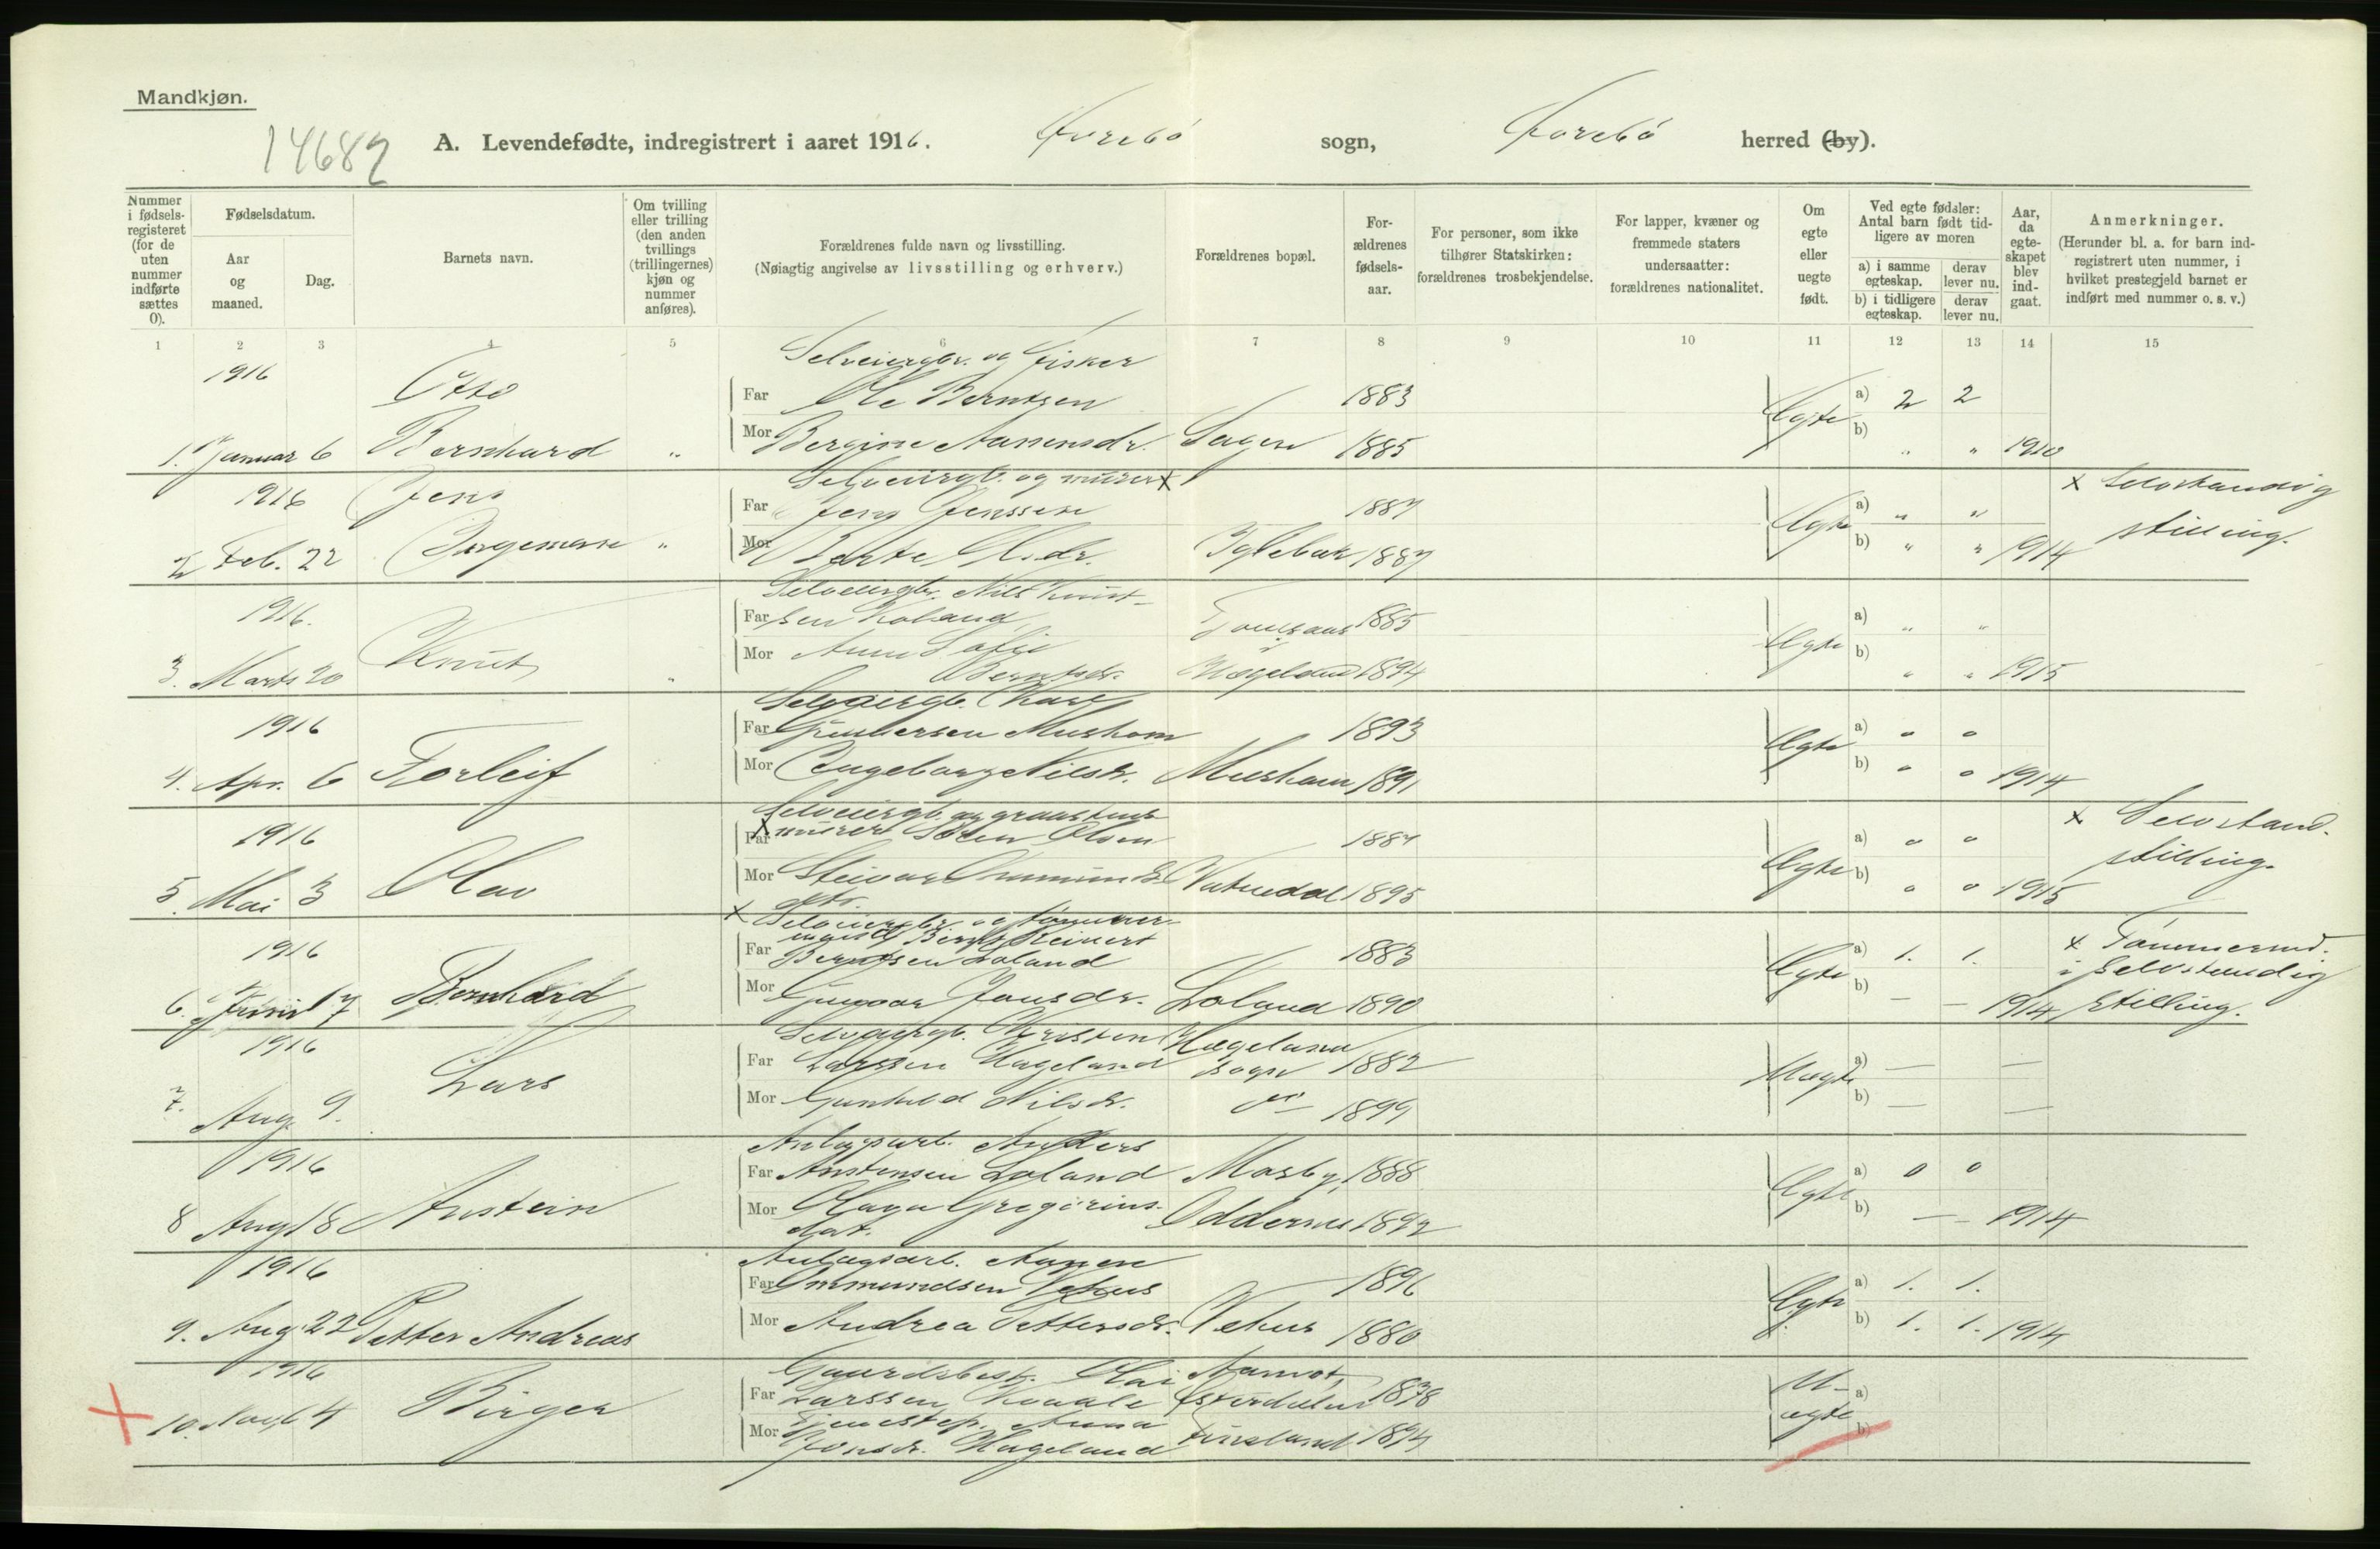 Mandkjøn.
14682
A. Levendefødte, indregistrert i aaret 1916. sogn, herred (by).
Nummer i fødsels-registeret (for de uten nummer indførte sættes 0).
Fødselsdatum.
Aar og maaned.
Dag.
Barnets navn.
Om tvilling eller trilling (den anden tvillings (trillingernes) kjøn og nummer anføres).
Forældrenes fulde navn og livsstilling.
(Nøiagtig angivelse av livsstilling og erhverv.)
Forældrenes bopæl.
For-ældrenes fødsels-aar.
For personer, som ikke tilhører Statskirken: forældrenes trosbekjendelse.
For lapper, kvæner og fremmede staters undersaatter: forældrenes nationalitet.
Om egte eller uegte født.
Ved egte fødsler: Antal barn født tid-ligere av moren
a) i samme egteskap.
derav lever nu.
b) i tidligere egteskap.
derav lever nu.
Aar, da egte-skapet blev ind-gaat.
Anmerkninger.
(Herunder bl. a. for barn ind-registrert uten nummer, i hvilket prestegjeld barnet er indført med nummer o. s. v.)
1 2 3 4 5 6 7 8 9 10 11 12 13 14 15
Selveiergbr. og Fisker
1916 Otto Far Ole Berntsen 1883 a) 2 2
1. Januar 6 Bernhard " Mor Bergine Aanensdr. 1885 Egte b) " " 1910
Selveiergb. og murer x
1916 Jens Far Jens Jenssen 1887 Egte a) " " x Selvstændig
2 Feb. 22 " Mor Berte 1887 b) " " 1914 stilling.
Selveiergbr. Nils Knut-
1916. Far sen 1885 a) " "
3. Marts 20 Knut " Mor Anne Sofie Berntsdr. Hægeland 1894 Egte b) " " 1915
Selveiergb.
1916 Far Gunbersen 1893 Egte a) " "
4. Apr. 6 Torleif Mor Ingeborg Nilsdr. 1891 b) " " 1914
Selveiergb. og graastens
1916 Far x murer Olsen 1887 a) " " x Selvstænd.
5. Mai 3 Olav Mor 1895 Egte b) " " 1915 stilling.
x Selveiergbr. og tømmer-
1916 Far Bernt Reinert Berntsen Loland 1883 Egte a) 1. 1. x Tømmermd.
6. Juni 17 Bernhard Mor Gunvor Jonsdr. Loland 1890 b) — — 1914 i selvstændig stilling.
Selveiergb. Kristen Hægeland
1916 Lars Far Larssen Hageland sogn 1882 Uegte a) — —
7. Aug. 9. Mor Gunhild Nilsdr. 1899 b) — —
Anlægsarb. Anders
1916 Far Austensen Loland Mosby, 1888 Egte a) 0 0
8 Aug 18 Austein Mor Olga Gregorius-dat. Oddernes 1892 b) — — 1914
Anlægsarb. Aanen
1916 Far Ommundsen Vehus 1896 Egte a) 1. 1.
9. Aug. 22 Petter Andreas Mor Andrea Pettersdr. Vehus 1880 b) 1. 1. 1914
Gaardsbest. Olai Aamot,
1916 Birger Far Larssen Østerdalen 1878 U- a)
10. 4 Mor Tjenestep. Anna Jonsdr. Hageland Finsland 1894 egte b)